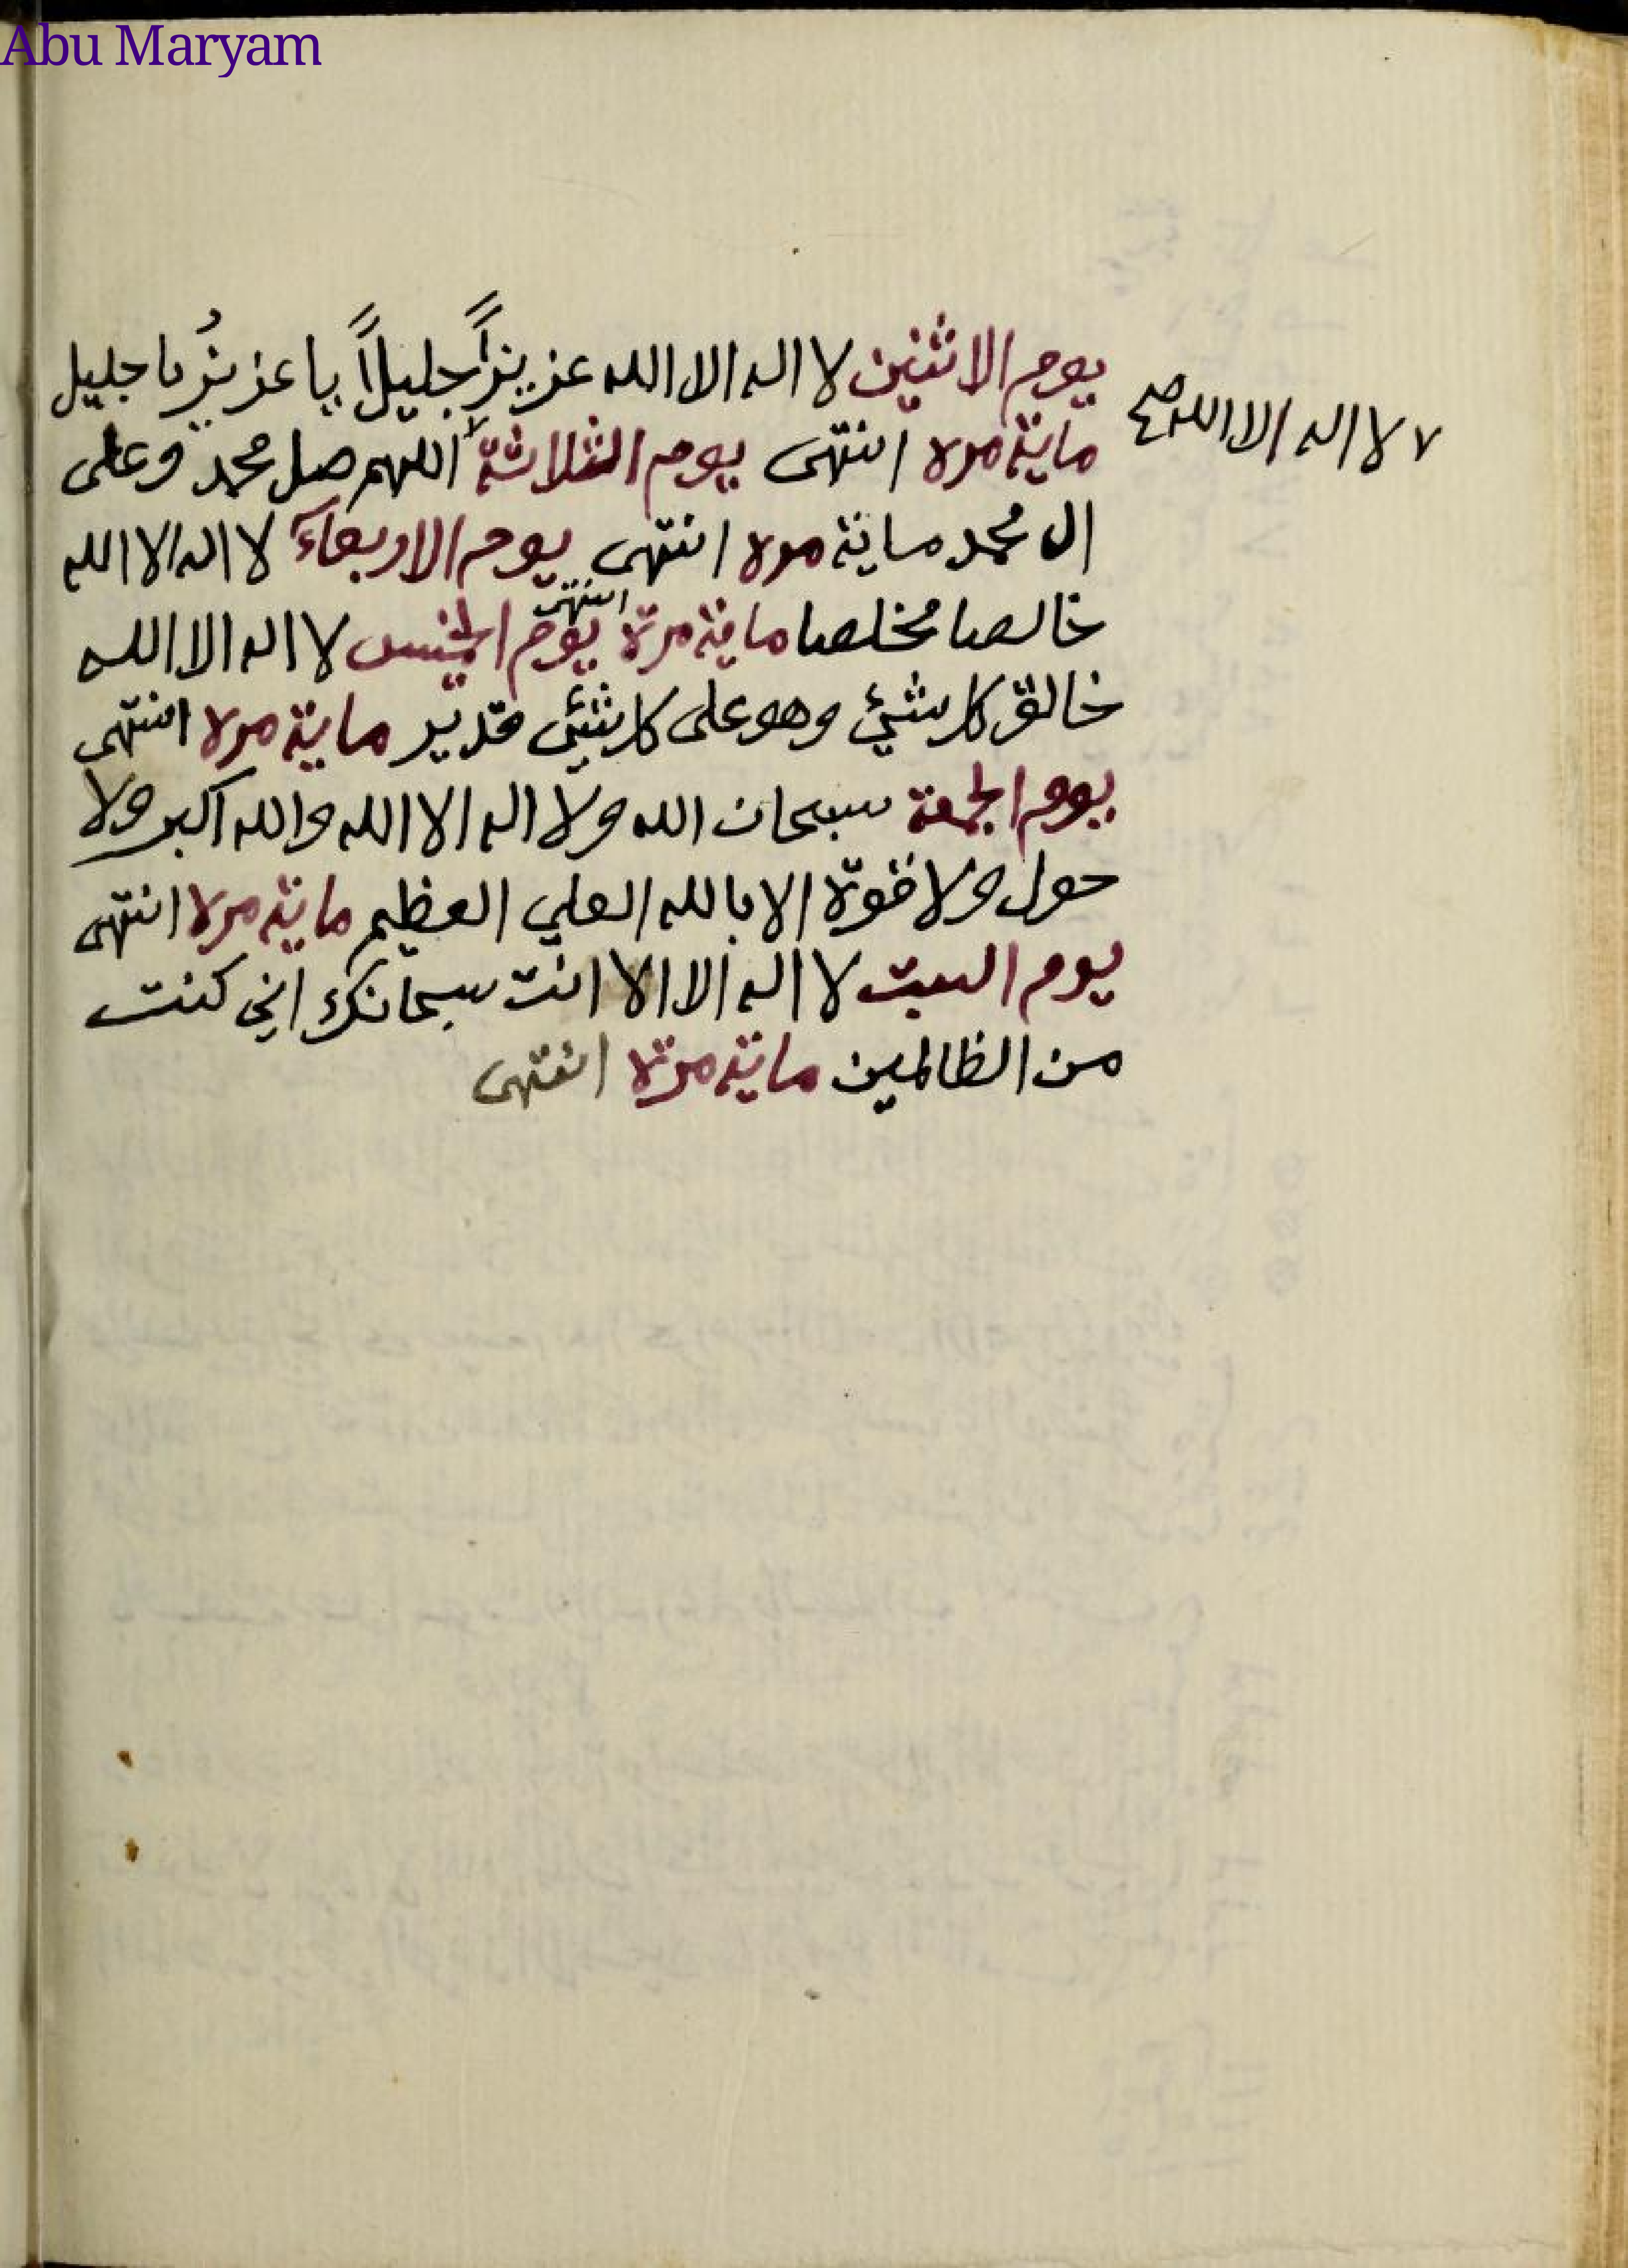 Abu Maryam
يوم الاثنين لا اله الا الله عزيزاً جليلاً يا عزيزُ يا جليل
ماية مرة انتهى يوم الثلاثة اللهم صل محمد وعلى
ال محمد ماية مرة انتهى يوم الاربعآء لا اله الا الله
خالصا مخلصا ماية مرة انتهى يوم الخميس لا اله الا الله
خالق كل شيئ وهو على كل شيئ قدير ماية مرة انتهى
يوم الجمعة سبحان الله ولا اله الا الله والله اكبر ولا
حول ولا قوة الا بالله العلي العظيم ماية مرة انتهى
يوم السبت لا اله الا الا انت سبحانك اني كنت
من الظالمين ماية مرة انتهى
٧ لا اله الا الله صح